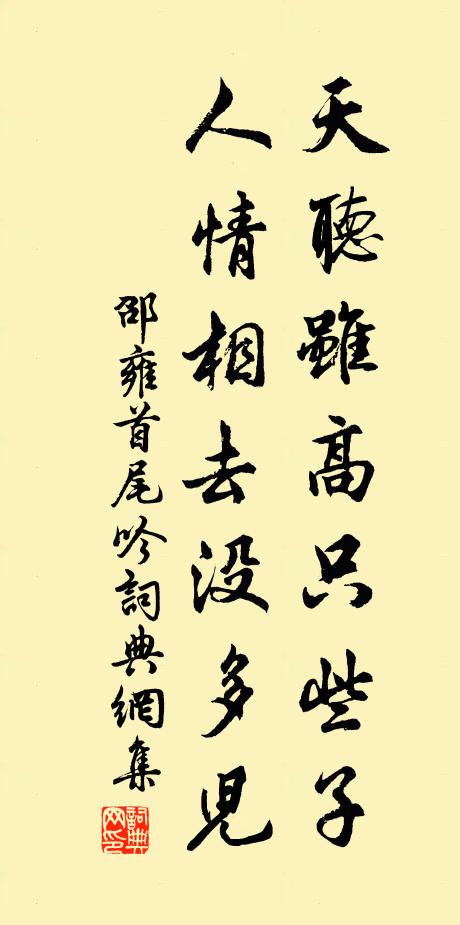 天聴雖高只些子
人情相去没多児
邵雍首尾吟詞典網集
詞典網印